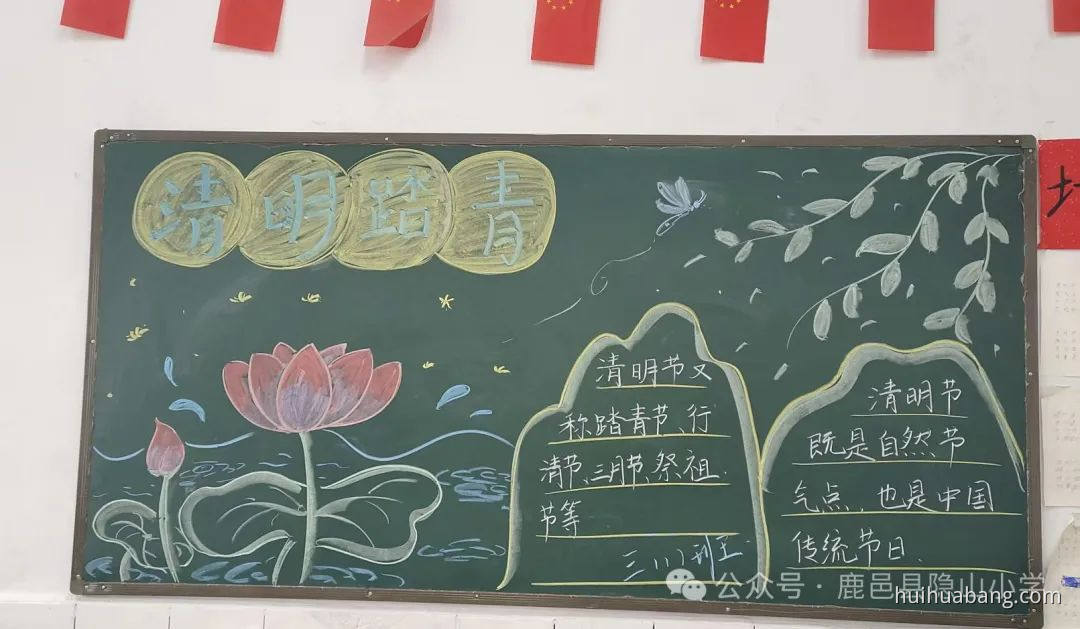 清明踏青
清明节又
称踏青节、行
清节、三月节、祭祖
节等
清明节
既是自然节
气点，也是中国
传统节日.
公众号·鹿邑县隐山小学
huihuabang.com